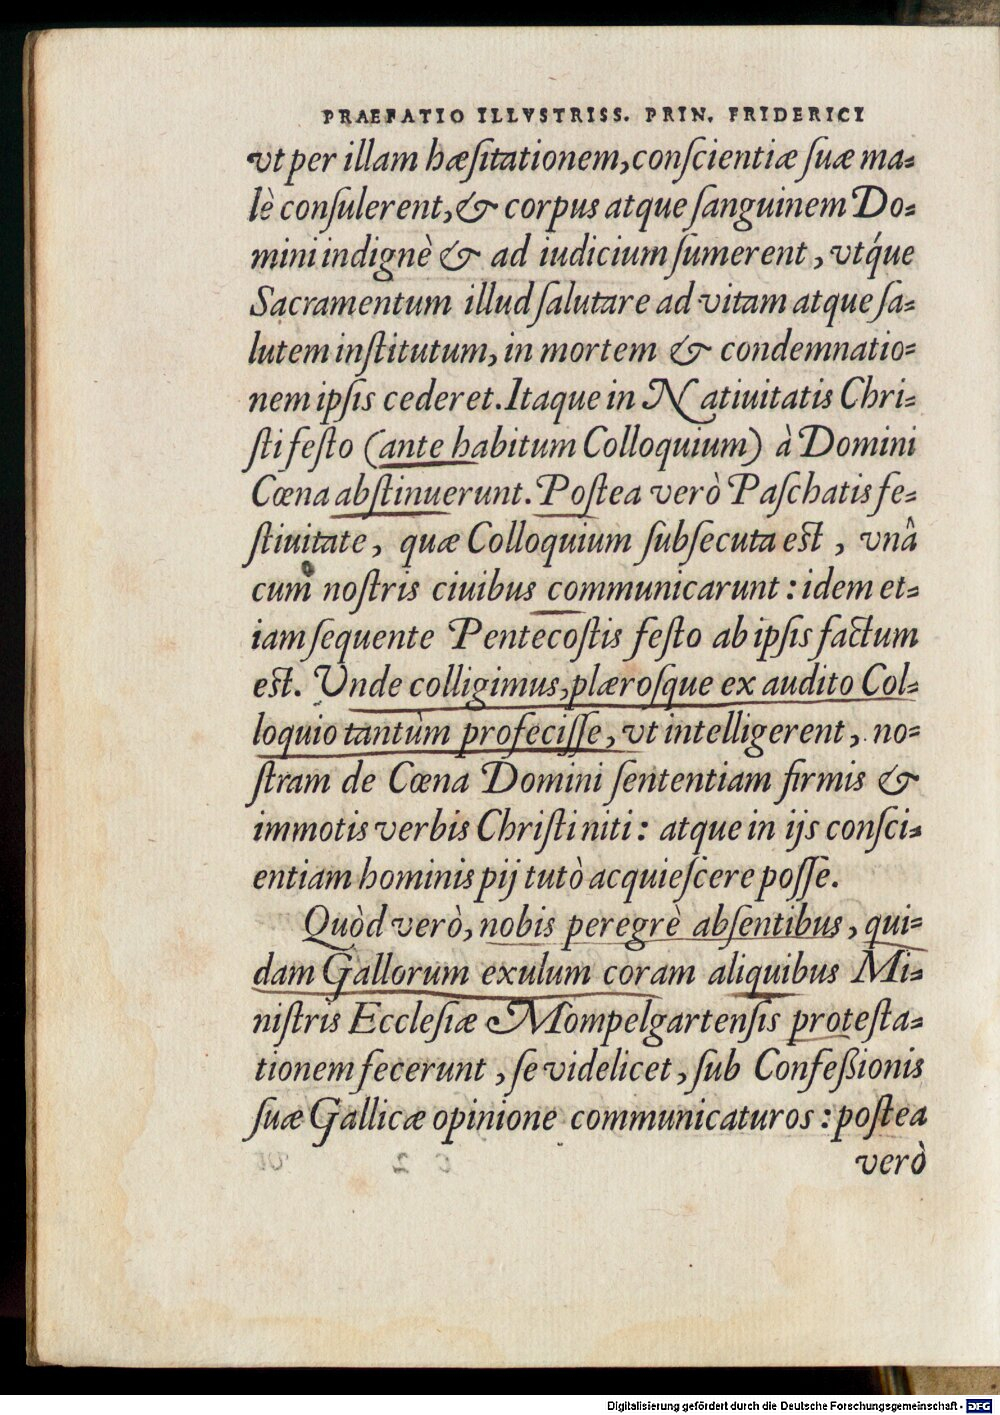 PRAEFATIO ILLVSTRISS. PRIN. FRIDERICI
vt per illam hæſitationem, conſcientiæ ſuæ ma-
lè conſulerent, & corpus atque ſanguinem Do-
mini indignè & ad iudicium ſumerent, vtq́ue
Sacramentum illud ſalutare ad vitam atque ſa-
lutem inſtitutum, in mortem & condemnatio-
nem ipſis cederet. Itaque in Natiuitatis Chri-
ſti feſto (ante habitum Colloquium) à Domini
Cœna abſtinuerunt. Poſtea verò Paſchatis fe-
ſtiuitate, quæ Colloquium ſubſecuta est, vnâ
cum noſtris ciuibus communicarunt: idem et-
iam ſequente Pentecoſtis feſto ab ipſis factum
est. Vnde colligimus, plæroſque ex audito Col-
loquio tantùm profeciſſe, vt intelligerent, no-
ſtram de Cœna Domini ſententiam firmis &
immotis verbis Chriſti niti: atque in ijs conſci-
entiam hominis pij tutò acquieſcere poſſe.
Quòd verò, nobis peregrè abſentibus, qui-
dam Gallorum exulum coram aliquibus Mi-
niſtris Eccleſiæ Mompelgartenſis proteſta-
tionem fecerunt, ſe videlicet, ſub Confeßionis
ſuæ Gallicæ opinione communicaturos: poſtea
verò
Digitalisierung gefördert durch die Deutsche Forschungsgemeinschaft - DFG